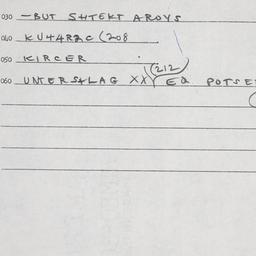 030 — BUT SHTEKT AROYS
040 KU44RZC (208
050 KIRCER
(212)
060 UNTERS4LAG XXY EQ POTSE